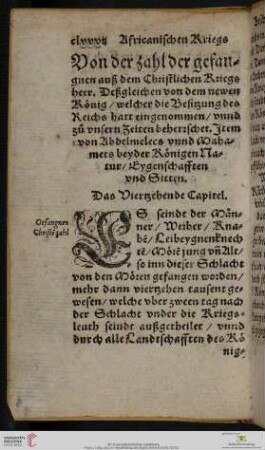 clxxxij Africanischen Kriegs
Von der zahl der gefan-
gnen auß dem Christlichen Kriegs
heer, Deßgleichen von dem newen
König / welcher die Besitzung des
Reichs hatt eingenommen / vnnd
zů vnsern Zeiten beherrschet. Item
von Abdelmelecs vnnd Maha-
mets beyder Königen Na-
tur / Eygenschafften
vnd Sitten.
Das Viertzehende Capitel.
Gefangnen
Christē zahl
ES seindt der Män-
ner / Weiber / Kna-
bē / Leibeygnenknech
tē / Mörē jung vñ Al-
te so inn dieser Schlacht
von den Mören gefangen worden /
mehr dann viertzehen tausent ge-
wesen / welche vber zween tag nach
der Schlacht vnder die Kriegs-
leuth seindt außgetheilet / vnnd
durch alle Landtschafften des Kö
nig-
UNIVERSITÄTS-
BIBLIOTHEK
HEIDELBERG